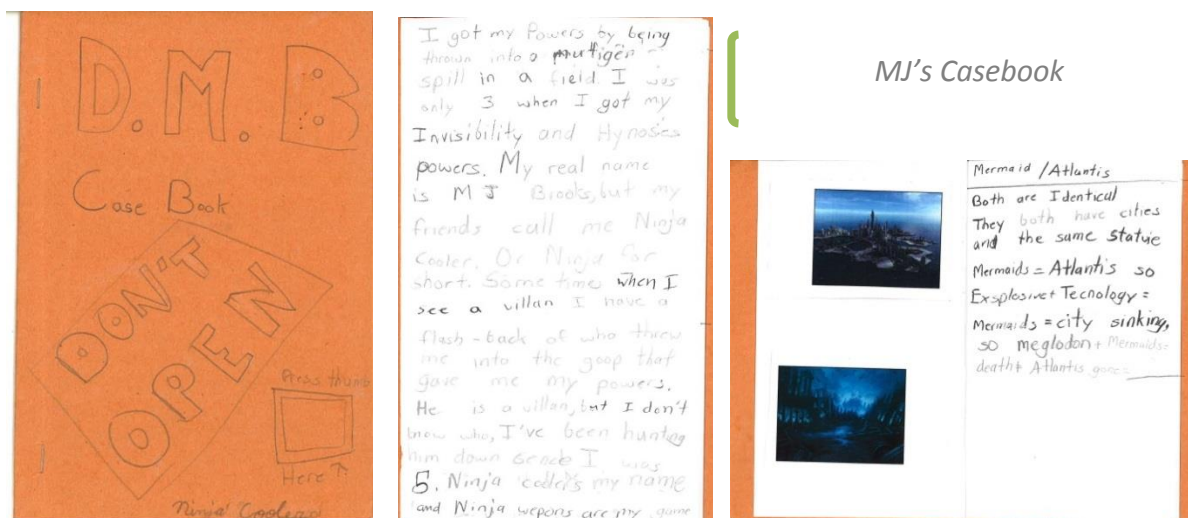 D.M.B
Case Book
DON'T
OPEN
Press thumb
Here
Ninja Cooler
I got my Powers by being
thrown into a
spill in a field. I was
only 3 when I got my
Invisibility and Hynoses
powers. My real name
is MJ Brooks, but my
friends call me Ninja
Cooler. Or Ninja for
short. Some time when I
see a villan I have a
flash-back of who threw
me into the goop that
gave me my powers.
He is a villan, but I don't
know who, I've been hunting
him down sence I was
5. Ninja my name
and Ninja wepons are my game
MJ's Casebook
Mermaid / Atlantis
Both are Identical
They both have cities
and the same statue
Mermaids = Atlantis so
Exsplosive + Tecnology =
Mermaids = city sinking,
so meglodon + Mermaids =
death + Atlantis gone=